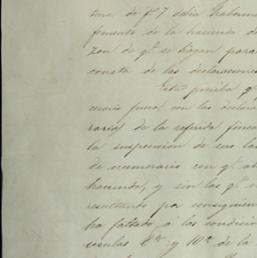 tura de fs 7 debia haberme
fomento de la hacienda de
zon de qe se digen para
consta de las declaraciones
Esta prueba qe
cencio fuera, con las declara
rario, de la referida finca
la suspension de sus la
de numerario con qe at
hacienda, y sin las qe
resultando por consiguien
ha faltado á las condicio
clausulas 8ª y 10ª de la